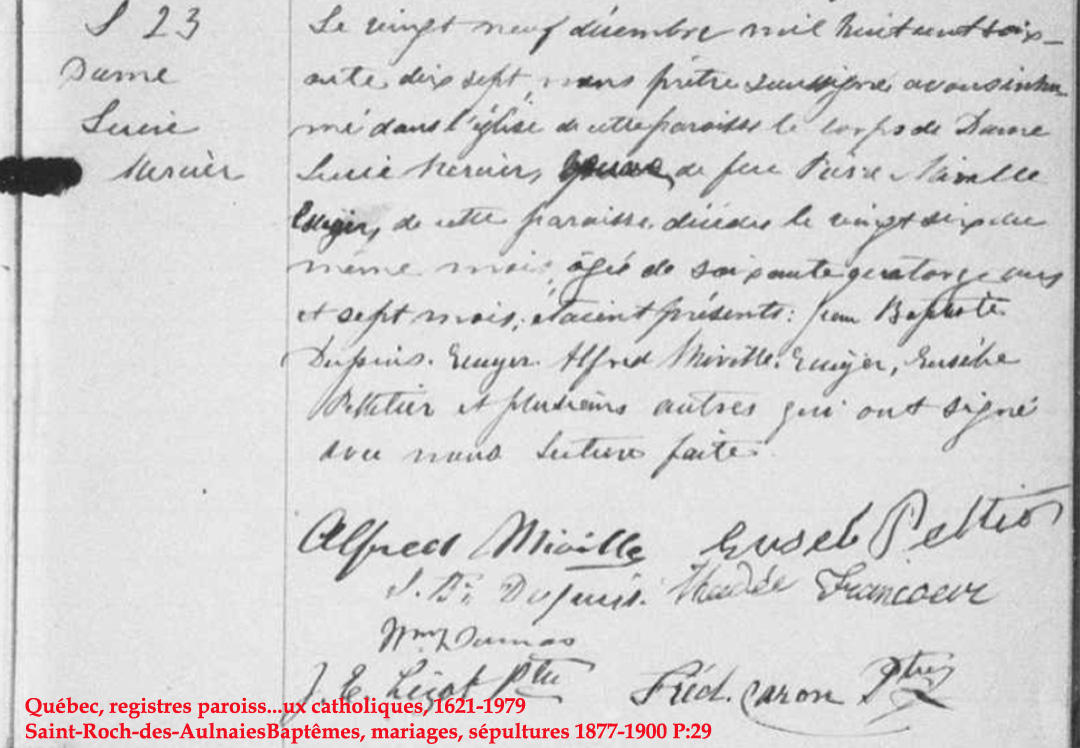 S 23
Dame
Lucie
Mercier
Le vingt neuf décembre mil huit cent soix-
ante dix sept, nous prêtre soussigné avons inhu
mé dans l'église de cette paroisse le corps de Dame
Lucie Mercier, de feu Pierre Miville
Ecuyer, de cette paroisse, décédée le vingt six du
même mois, âgée de soixante quatorze ans
et sept mois; étaient présents: Jean Baptiste
Dupuis. Ecuyer. Alfred Miville. Ecuyer, Eusèbe
Pelletier et plusieurs autres qui ont signé
avec nous lecture faite.
Alfred Miville Eusèb Peltier
J. Bte Dupuis. Thadée Francoeur
Wm Dumas
J. E. Ptre Fréd. Caron Ptre
Québec, registres paroiss...ux catholiques, 1621-1979
Saint-Roch-des-AulnaiesBaptêmes, mariages, sépultures 1877-1900 P:29